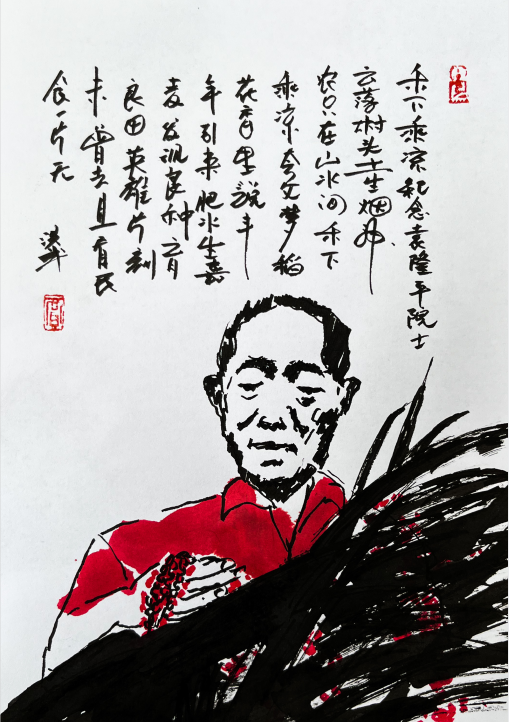 禾下乘凉纪念袁隆平院士
云落树头土生烟神
农只在山水间禾下
乘凉夸父梦稻
花香里说丰
年引来肥水生嘉
麦发现良种育
良田英雄片刻
未曾去且看民
食一片天